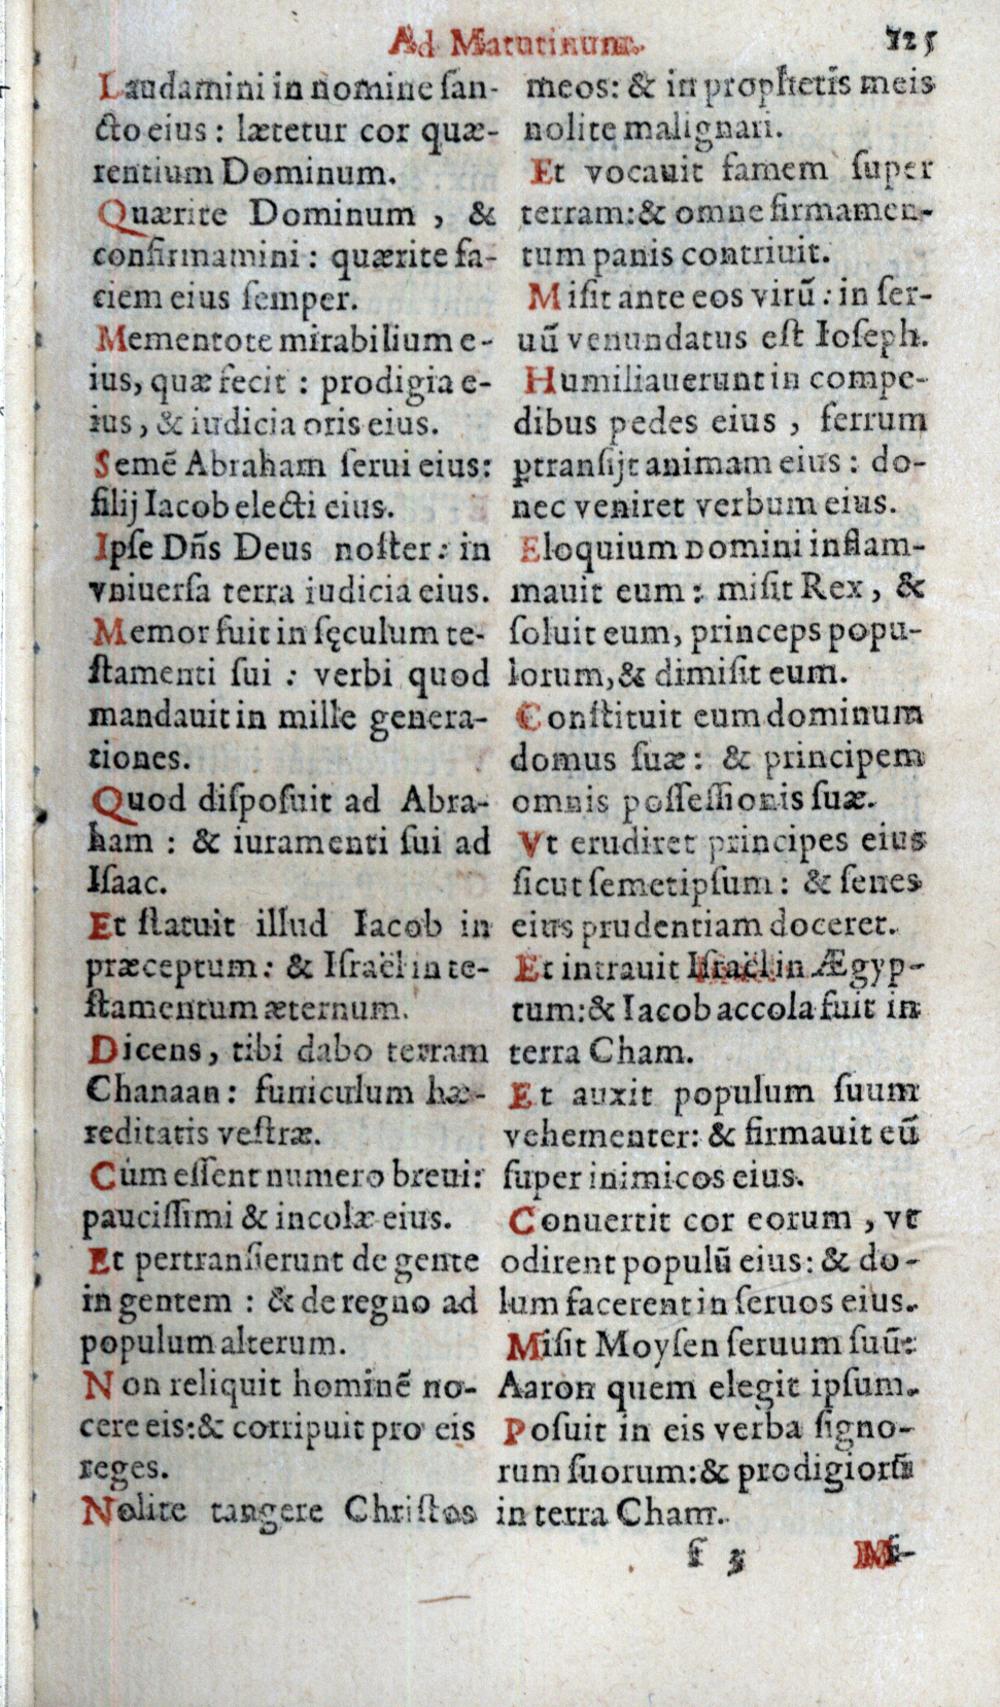 Ad Matutinum.
125
Laudamini in nomine ſan-
cto eius : lætetur cor quæ-
rentium Dominum.
Quærite Dominum , &
confirmamini : quærite fa-
ciem eius ſemper.
Mementote mirabilium e-
ius, quæ fecit : prodigia e-
ius , & iudicia oris eius.
Semẽ Abraham ſerui eius:
filij Iacob electi eius.
Ipſe Dñs Deus noſter : in
vniuerſa terra iudicia eius.
Memor fuit in ſęculum te-
ſtamenti ſui : verbi quod
mandauit in mille genera-
tiones.
Quod diſpoſuit ad Abra-
ham : & iuramenti ſui ad
Iſaac.
Et ſtatuit illud Iacob in
præceptum : & Iſraël in te-
ſtamentum æternum.
Dicens, tibi dabo terram
Chanaan : funiculum hæ-
reditatis veſtræ.
Cùm eſſent numero breui:
pauciſſimi & incolæ eius.
Et pertranſierunt de gente
in gentem : & de regno ad
populum alterum.
Non reliquit hominẽ no-
cere eis:& corripuit pro eis
reges.
Nolite tangere Chriſtos
meos: & in prophetis meis
nolite malignari.
Et vocauit famem ſuper
terram:& omne firmamen-
tum panis contriuit.
Miſit ante eos virũ : in ſer-
uũ venundatus eſt Ioſeph.
Humiliauerunt in compe-
dibus pedes eius , ferrum
ꝑtranſijt animam eius : do-
nec veniret verbum eius.
Eloquium Domini inflam-
mauit eum : miſit Rex , &
ſoluit eum, princeps popu-
lorum,& dimiſit eum.
Conſtituit eum dominum
domus ſuæ : & principem
omnis poſſeſſionis ſuæ.
Vt erudiret principes eius
ſicut ſemetipſum : & ſenes
eius prudentiam doceret.
Et intrauit Iſraël in Ægyp-
tum:& Iacob accola fuit in
terra Cham.
Et auxit populum ſuum
vehementer: & firmauit eũ
ſuper inimicos eius.
Conuertit cor eorum , vt
odirent populũ eius: & do-
lum facerent in ſeruos eius.
Miſit Moyſen ſeruum ſuũ:
Aaron quem elegit ipſum.
Poſuit in eis verba ſigno-
rum ſuorum:& prodigiorũ
in terra Cham.
f 3
Mi-